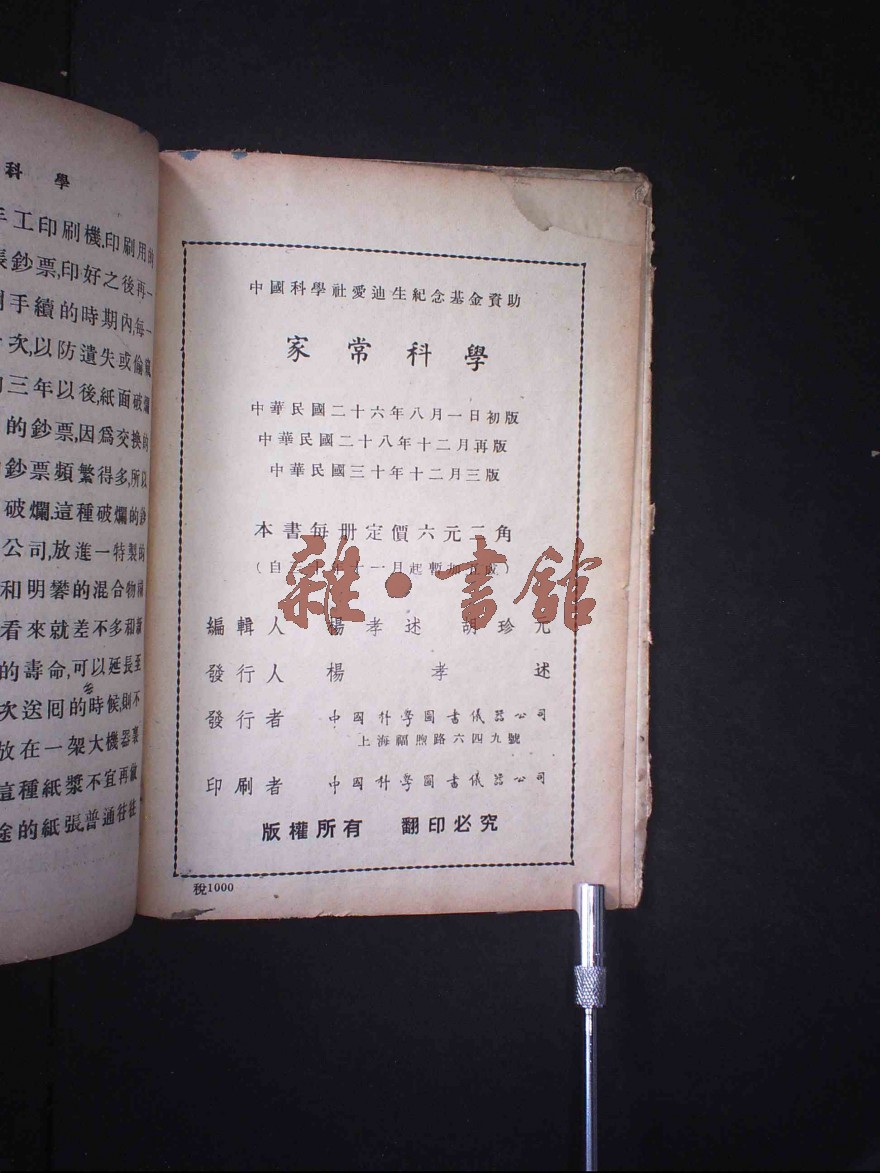 科學
手工印刷機.印刷用的
張鈔票,印好之後再一
手續的時期內,每一
次,以防遺失或偷竊
三年以後,紙面破爛
的鈔票,因爲交換的
鈔票頻繁得多,所以
破爛.這種破爛的鈔
公司,放進一特製的
和明礬的混合物
看來就差不多和新
的壽命,可以延長至
次送回的時候,則不
放在一架大機器裏
這種紙漿不宜再做
途的紙張,普通往往
中國科學社愛迪生紀念基金資助
家常科學
中華民國二十六年八月一日初版
中華民國二十八年十二月再版
中華民國三十年十二月三版
本書每册定價六元二角
(自三十年十一月起暫加五成)
雜·書館
編輯人 楊孝述 胡珍元
發行人 楊孝述
發行者 中國科學圖書儀器公司
上海福煦路六四九號
印刷者 中國科學圖書儀器公司
版權所有 翻印必究
稅1000